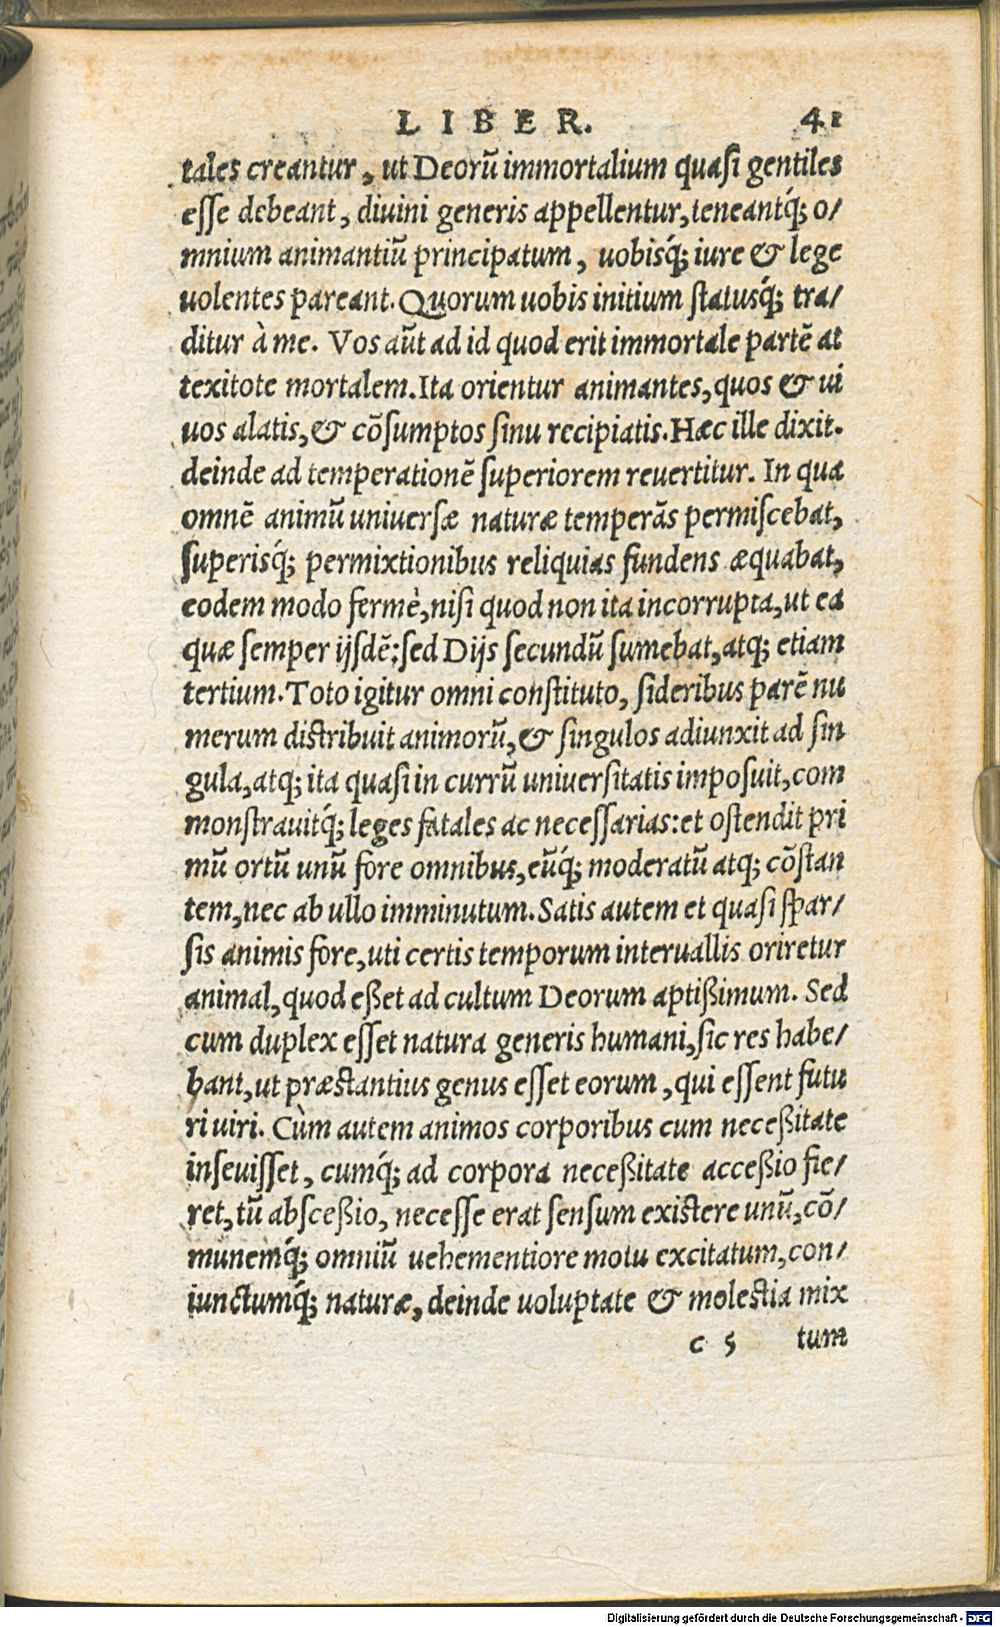 LIBER. 41
tales creantur, ut Deorũ immortalium quasi gentiles
esse debeant, diuini generis appellentur, teneantq́; o/
mnium animantiũ principatum, uobisq́; iure & lege
uolentes pareant. Quorum uobis initium statusq́; tra/
ditur à me. Vos aũt ad id quod erit immortale partẽ at
texitote mortalem. Ita orientur animantes, quos & ui
uos alatis, & cõsumptos sinu recipiatis. Hæc ille dixit.
deinde ad temperationẽ superiorem reuertitur. In qua
omnẽ animũ uniuersæ naturæ temperãs permiscebat,
superisq́; permixtionibus reliquias fundens æquabat,
eodem modo fermè, nisi quod non ita incorrupta, ut ea
quæ semper ijsdẽ: sed Dijs secundũ sumebat, atq; etiam
tertium. Toto igitur omni constituto, sideribus parẽ nu
merum distribuit animorũ, & singulos adiunxit ad sin
gula, atq; ita quasi in currũ uniuersitatis imposuit, com
monstrauitq́; leges fatales ac necessarias: et ostendit pri
mũ ortũ unũ fore omnibus, eũq́; moderatũ atq; cõstan
tem, nec ab ullo imminutum. Satis autem et quasi spar/
sis animis fore, uti certis temporum interuallis oriretur
animal, quod eßet ad cultum Deorum aptißimum. Sed
cum duplex esset natura generis humani, sic res habe/
bant, ut præstantius genus esset eorum, qui essent futu
ri uiri. Cùm autem animos corporibus cum neceßitate
inseuisset, cumq́; ad corpora neceßitate acceßio fie/
ret, tũ absceßio, necesse erat sensum existere unũ, cõ/
munemq́; omniũ uehementiore motu excitatum, con/
iunctumq́; naturæ, deinde uoluptate & molestia mix
c 5 tum
Digitalisierung gefördert durch die Deutsche Forschungsgemeinschaft - DFG